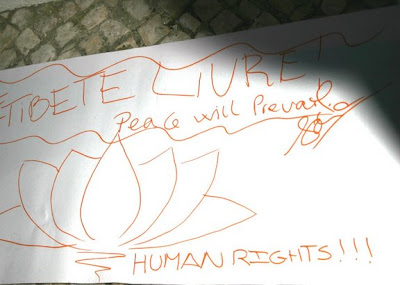 TIBETE LIVRE!
Peace will Prevail
HUMAN RIGHTS!!!